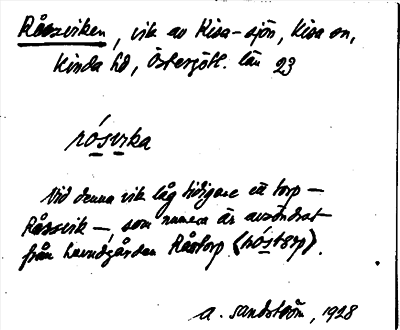 Råssviken, vik av Kisa-sjön, Kisa sn,
Kinda hd, Östergötl. län 23
rósvika
Vid denna vik låg tidigare ett torp –
Råssvik –, som numera är avsöndrat
från huvudgården Råstorp (róstorp).
A. Sandström, 1928